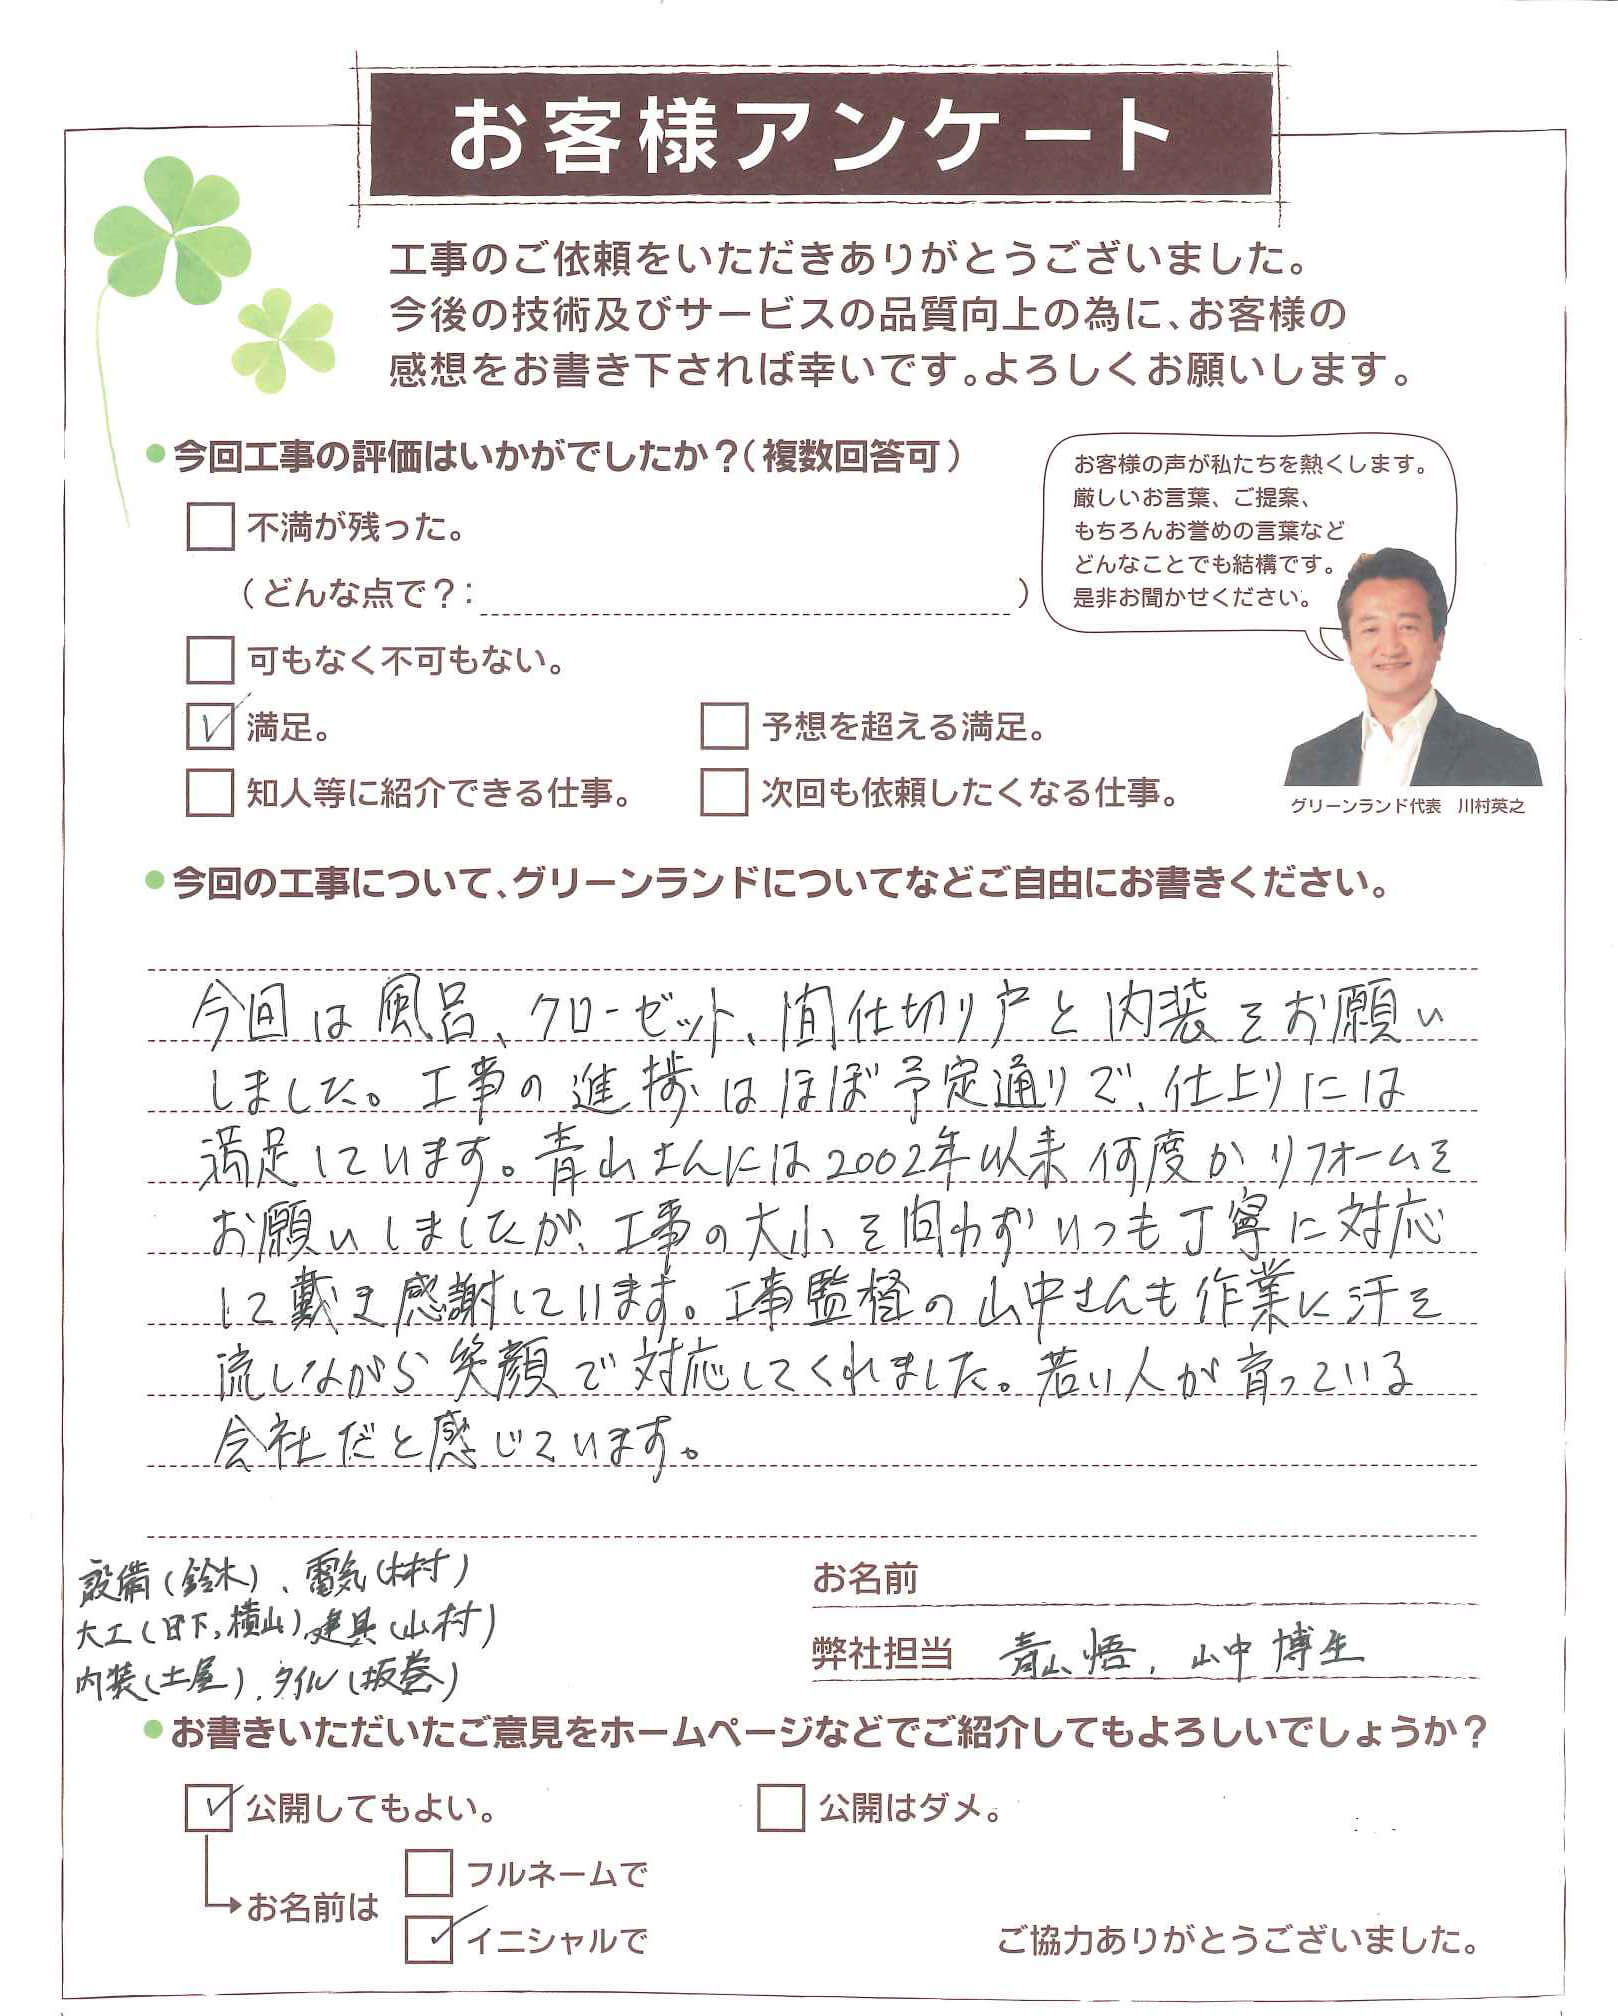 お客様アンケート
工事のご依頼をいただきありがとうございました。
今後の技術及びサービスの品質向上の為に、お客様の
感想をお書き下されば幸いです。よろしくお願いします。
今回工事の評価はいかがでしたか?(複数回答可)
お客様の声が私たちを熱くします。
厳しいお言葉、ご提案、
もちろんお誉めの言葉など
どんなことでも結構です。
是非お聞かせください。
不満が残った。
(どんな点で?: )
可もなく不可もない。
満足。
予想を超える満足。
知人等に紹介できる仕事。
次回も依頼したくなる仕事。
グリーンランド代表 川村英之
今回の工事について、グリーンランドについてなどご自由にお書きください。
今回は風呂、クローゼット、間仕切り戸と内装をお願い
しました。工事の進捗はほぼ予定通りで、仕上りには
満足しています。青山さんには2002年以来何度かリフォームを
お願いしましたが、工事の大小を問わずいつも丁寧に対応
して戴き感謝しています。工事監督の山中さんも作業に汗を
流しながら笑顔で対応してくれました。若い人が育っている
会社だと感じています。
設備(鈴木)、電気(林村)
大工(日下,横山)、建具(山村)
内装(土屋)、タイル(坂巻)
お名前
弊社担当 青山悟, 山中博生
お書きいただいたご意見をホームページなどでご紹介してもよろしいでしょうか?
公開してもよい。
公開はダメ。
お名前は
フルネームで
イニシャルで
ご協力ありがとうございました。